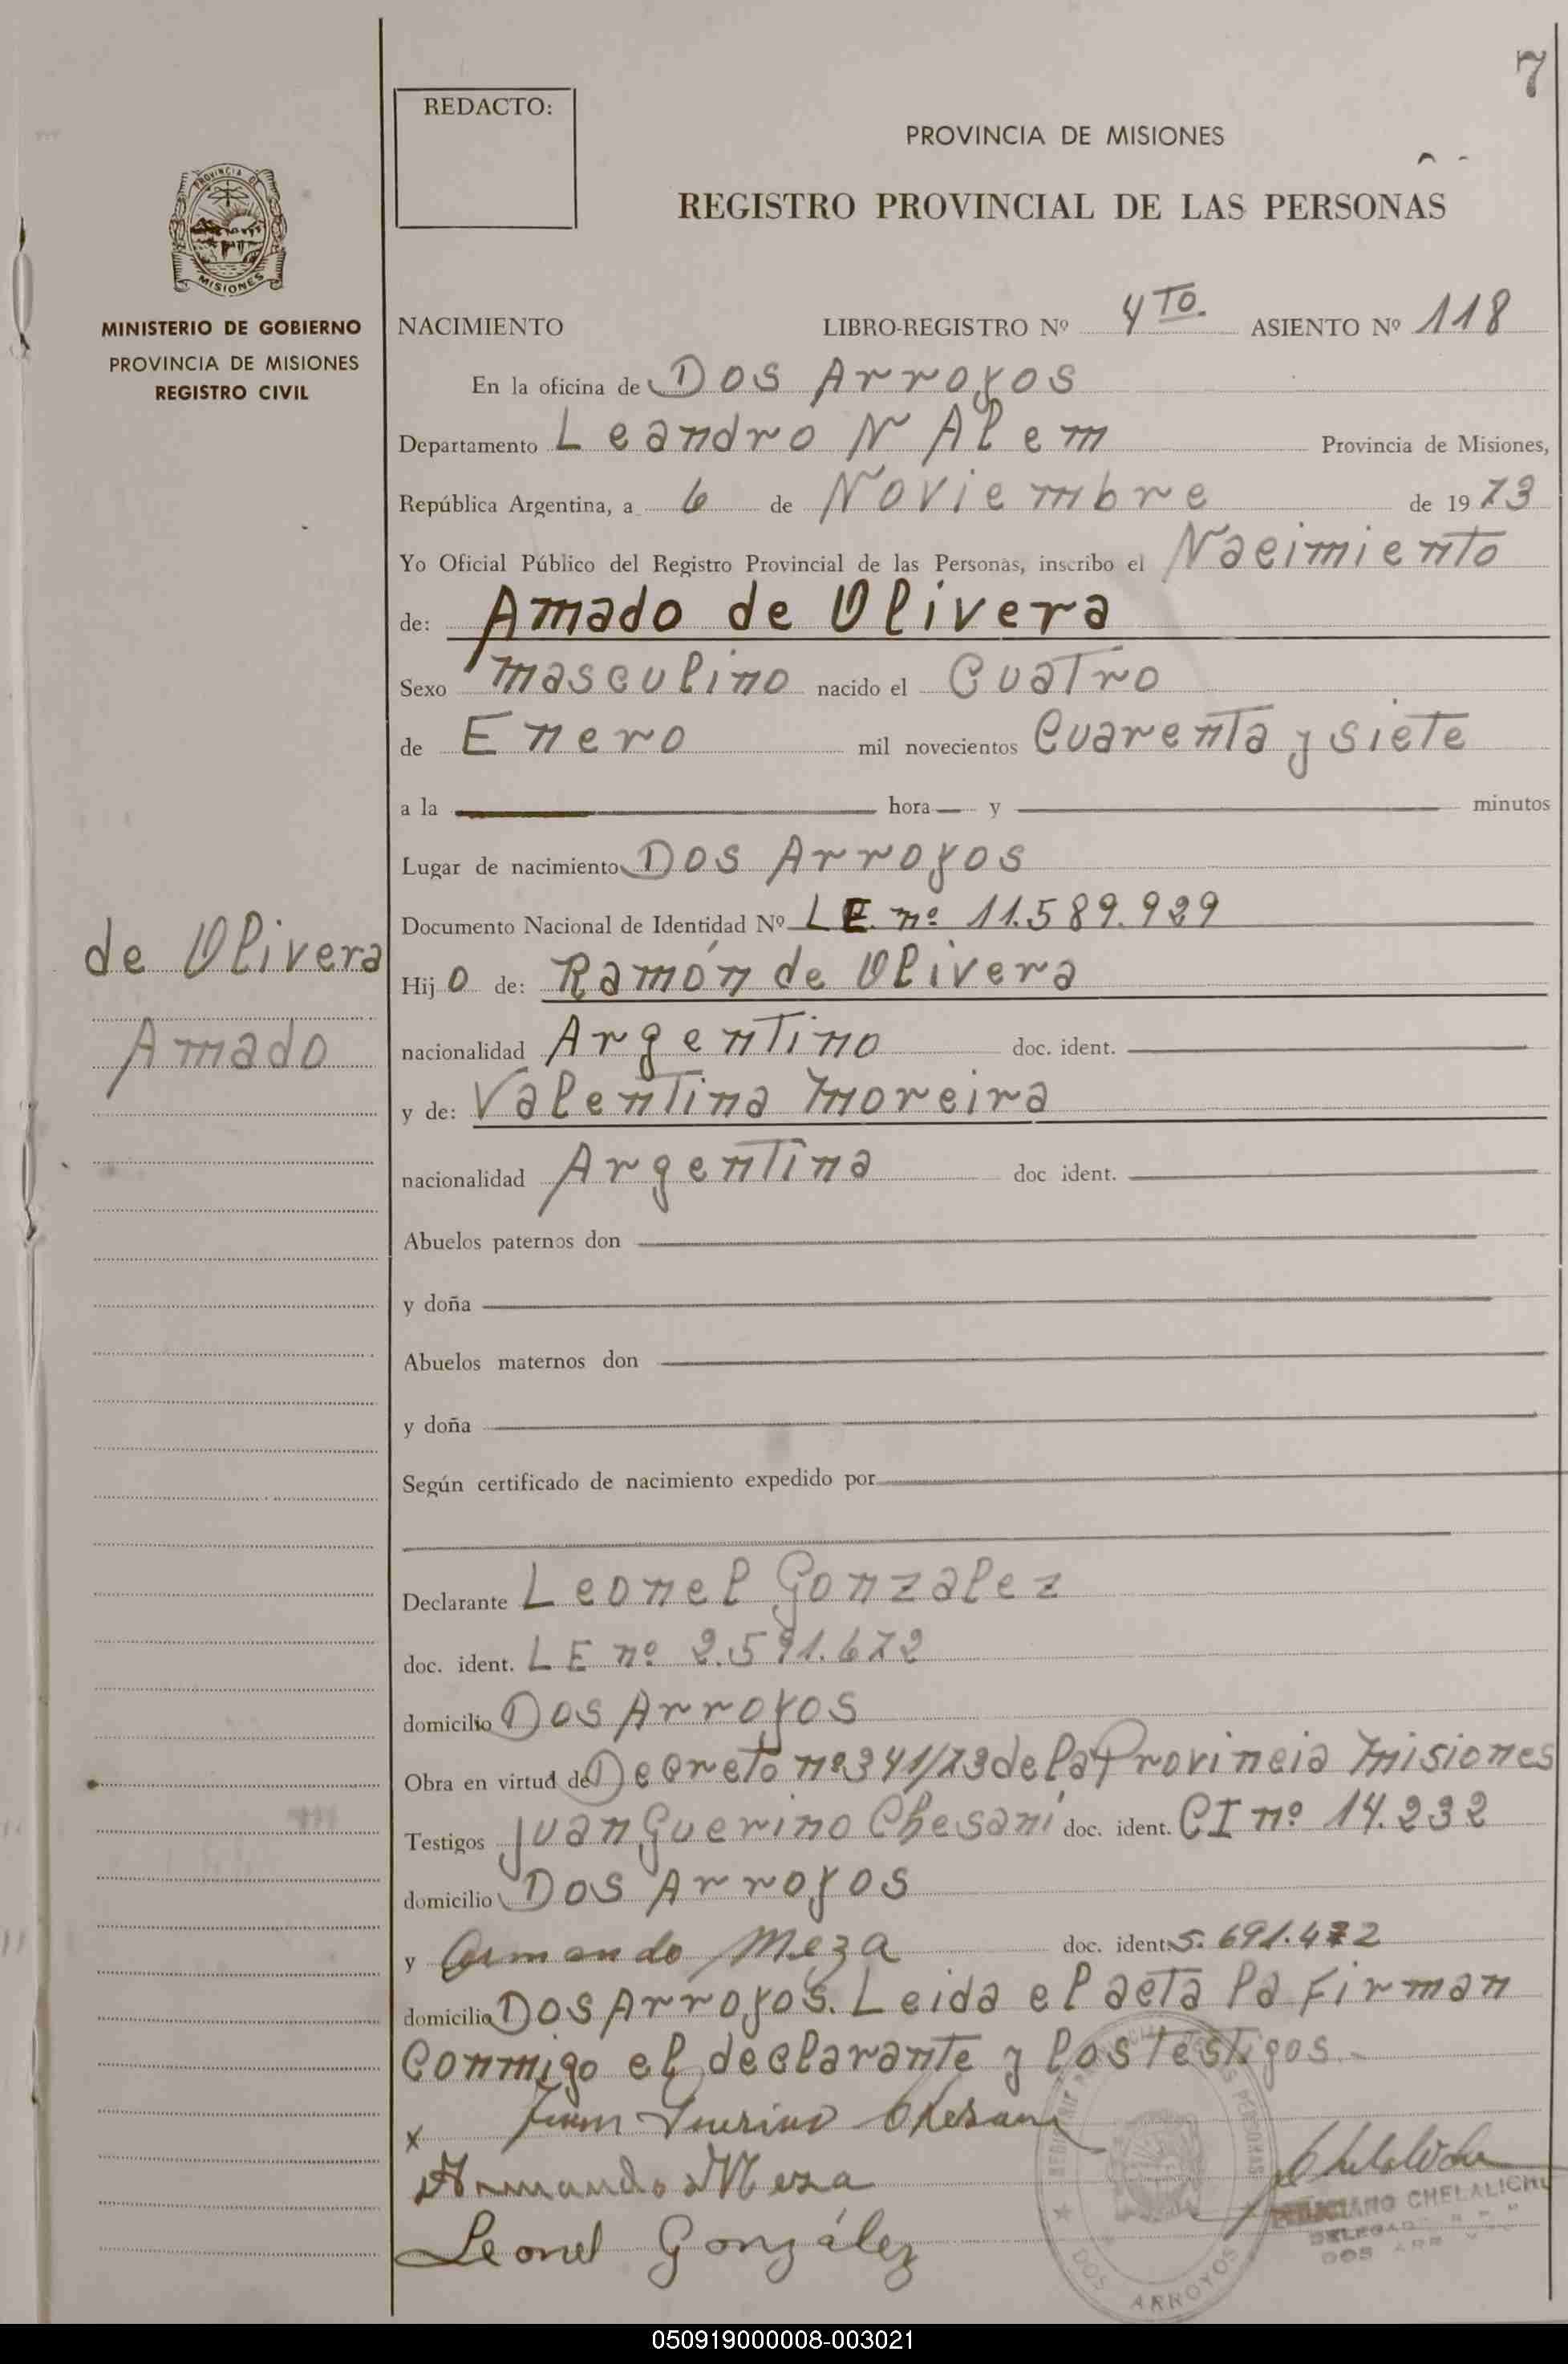 7
REDACTO:
PROVINCIA DE MISIONES
REGISTRO PROVINCIAL DE LAS PERSONAS
PROVINCIA DE
MISIONES
MINISTERIO DE GOBIERNO
PROVINCIA DE MISIONES
REGISTRO CIVIL
NACIMIENTO LIBRO-REGISTRO Nº 4TO. ASIENTO Nº 118
En la oficina de Dos Arroyos
Departamento Leandro N Alem Provincia de Misiones,
República Argentina, a 6 de Noviembre de 1973
Yo Oficial Público del Registro Provincial de las Personas, inscribo el Nacimiento
de: Amado de Olivera
Sexo masculino nacido el Cuatro
de Enero mil novecientos Cuarenta y siete
a la hora y minutos
Lugar de nacimiento Dos Arroyos
Documento Nacional de Identidad Nº LE. nº 11.589.929
de Olivera
Amado
Hijo de: Ramón de Olivera
nacionalidad Argentino doc. ident.
y de: Valentina Moreira
nacionalidad Argentina doc ident.
Abuelos paternos don
y doña
Abuelos maternos don
y doña
Según certificado de nacimiento expedido por
Declarante Leonel Gonzalez
doc. ident. LE nº 2.591.672
domicilio Dos Arroyos
Obra en virtud de Decreto nº 341/73 de la Provincia Misiones
Testigos Juan Guerino Chesani doc. ident. CI nº 14.232
domicilio Dos Arroyos
y Armando Meza doc. ident. 5.691.472
domicilio Dos Arroyos. Leida el acta la firman
Conmigo el declarante y los testigos.-
x Juan Guerino Chesani
Armando Meza
Leonel González
CHELALICHE
DOS ARROYOS
050919000008-003021